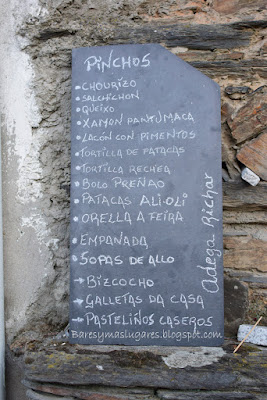 PINCHOS
• CHOURIZO
• SALCHICHON
• QUEIXO
• XAMON PANTUMACA
• LACÓN CON PIMENTOS
• TORTILLA DE PATACAS
• TORTILLA RECHEA
• BOLO PREÑAO
• PATACAS ALI-OLI
• ORELLA A FEIRA
• EMPANADA
• SOPAS DE ALLO
→ BIZCOCHO
→ GALLETAS DA CASA
→ PASTELIÑOS CASEROS
Adega Richar
Baresymaslugares.blogspot.com